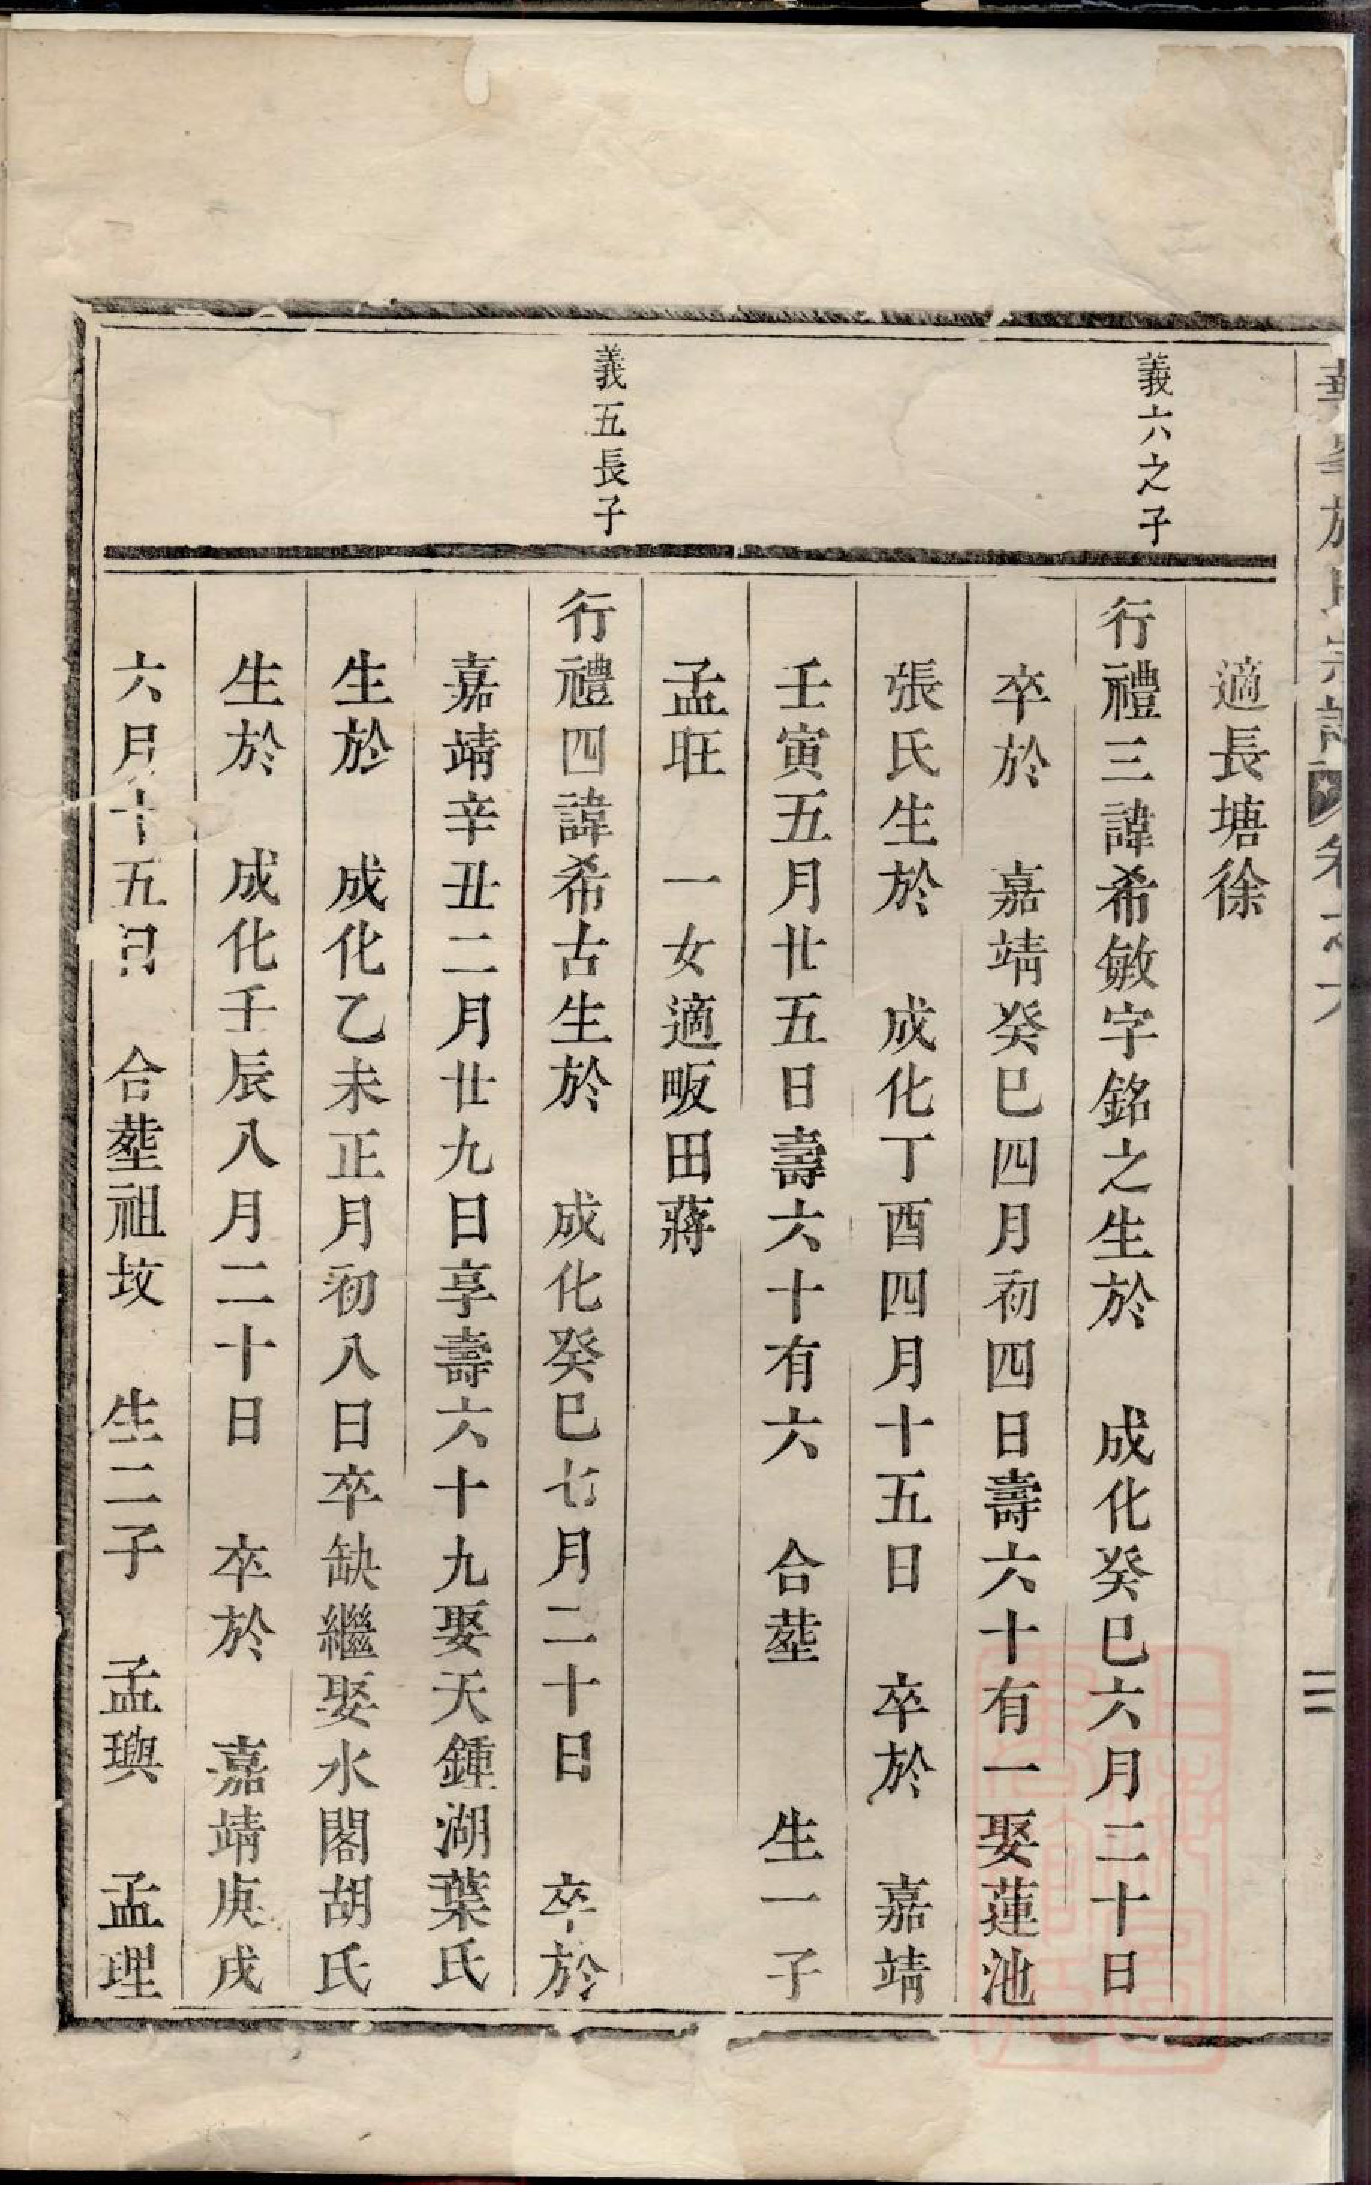 適長塘徐
義六之子
行禮三諱希敏字銘之生於　成化癸巳六月二十日
卒於　嘉靖癸巳四月初四日壽六十有一娶蓮池
張氏生於　成化丁酉四月十五日　卒於　嘉靖
壬寅五月廿五日壽六十有六　合塟　生一子
孟旺　一女適畈田蔣
義五長子
行禮四諱希古生於　成化癸巳七月二十日　卒於
嘉靖辛丑二月廿九日享壽六十九娶天鍾湖葉氏
生於　成化乙未正月初八日卒缺繼娶水閣胡氏
生於　成化壬辰八月二十日　卒於　嘉靖庚戌
六月十五日　合塟祖坟　生二子　孟璵　孟理